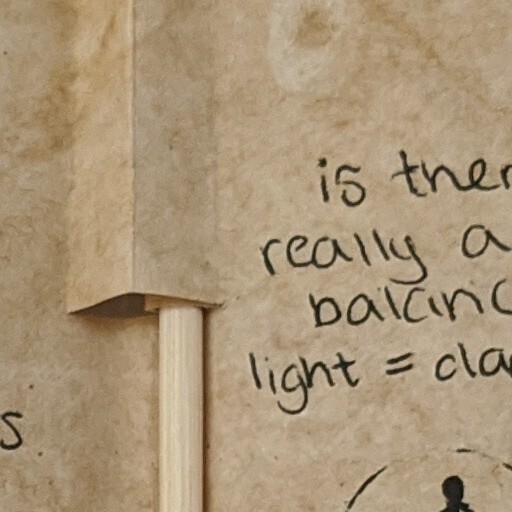 is ther
really a
balanc
light = da
s